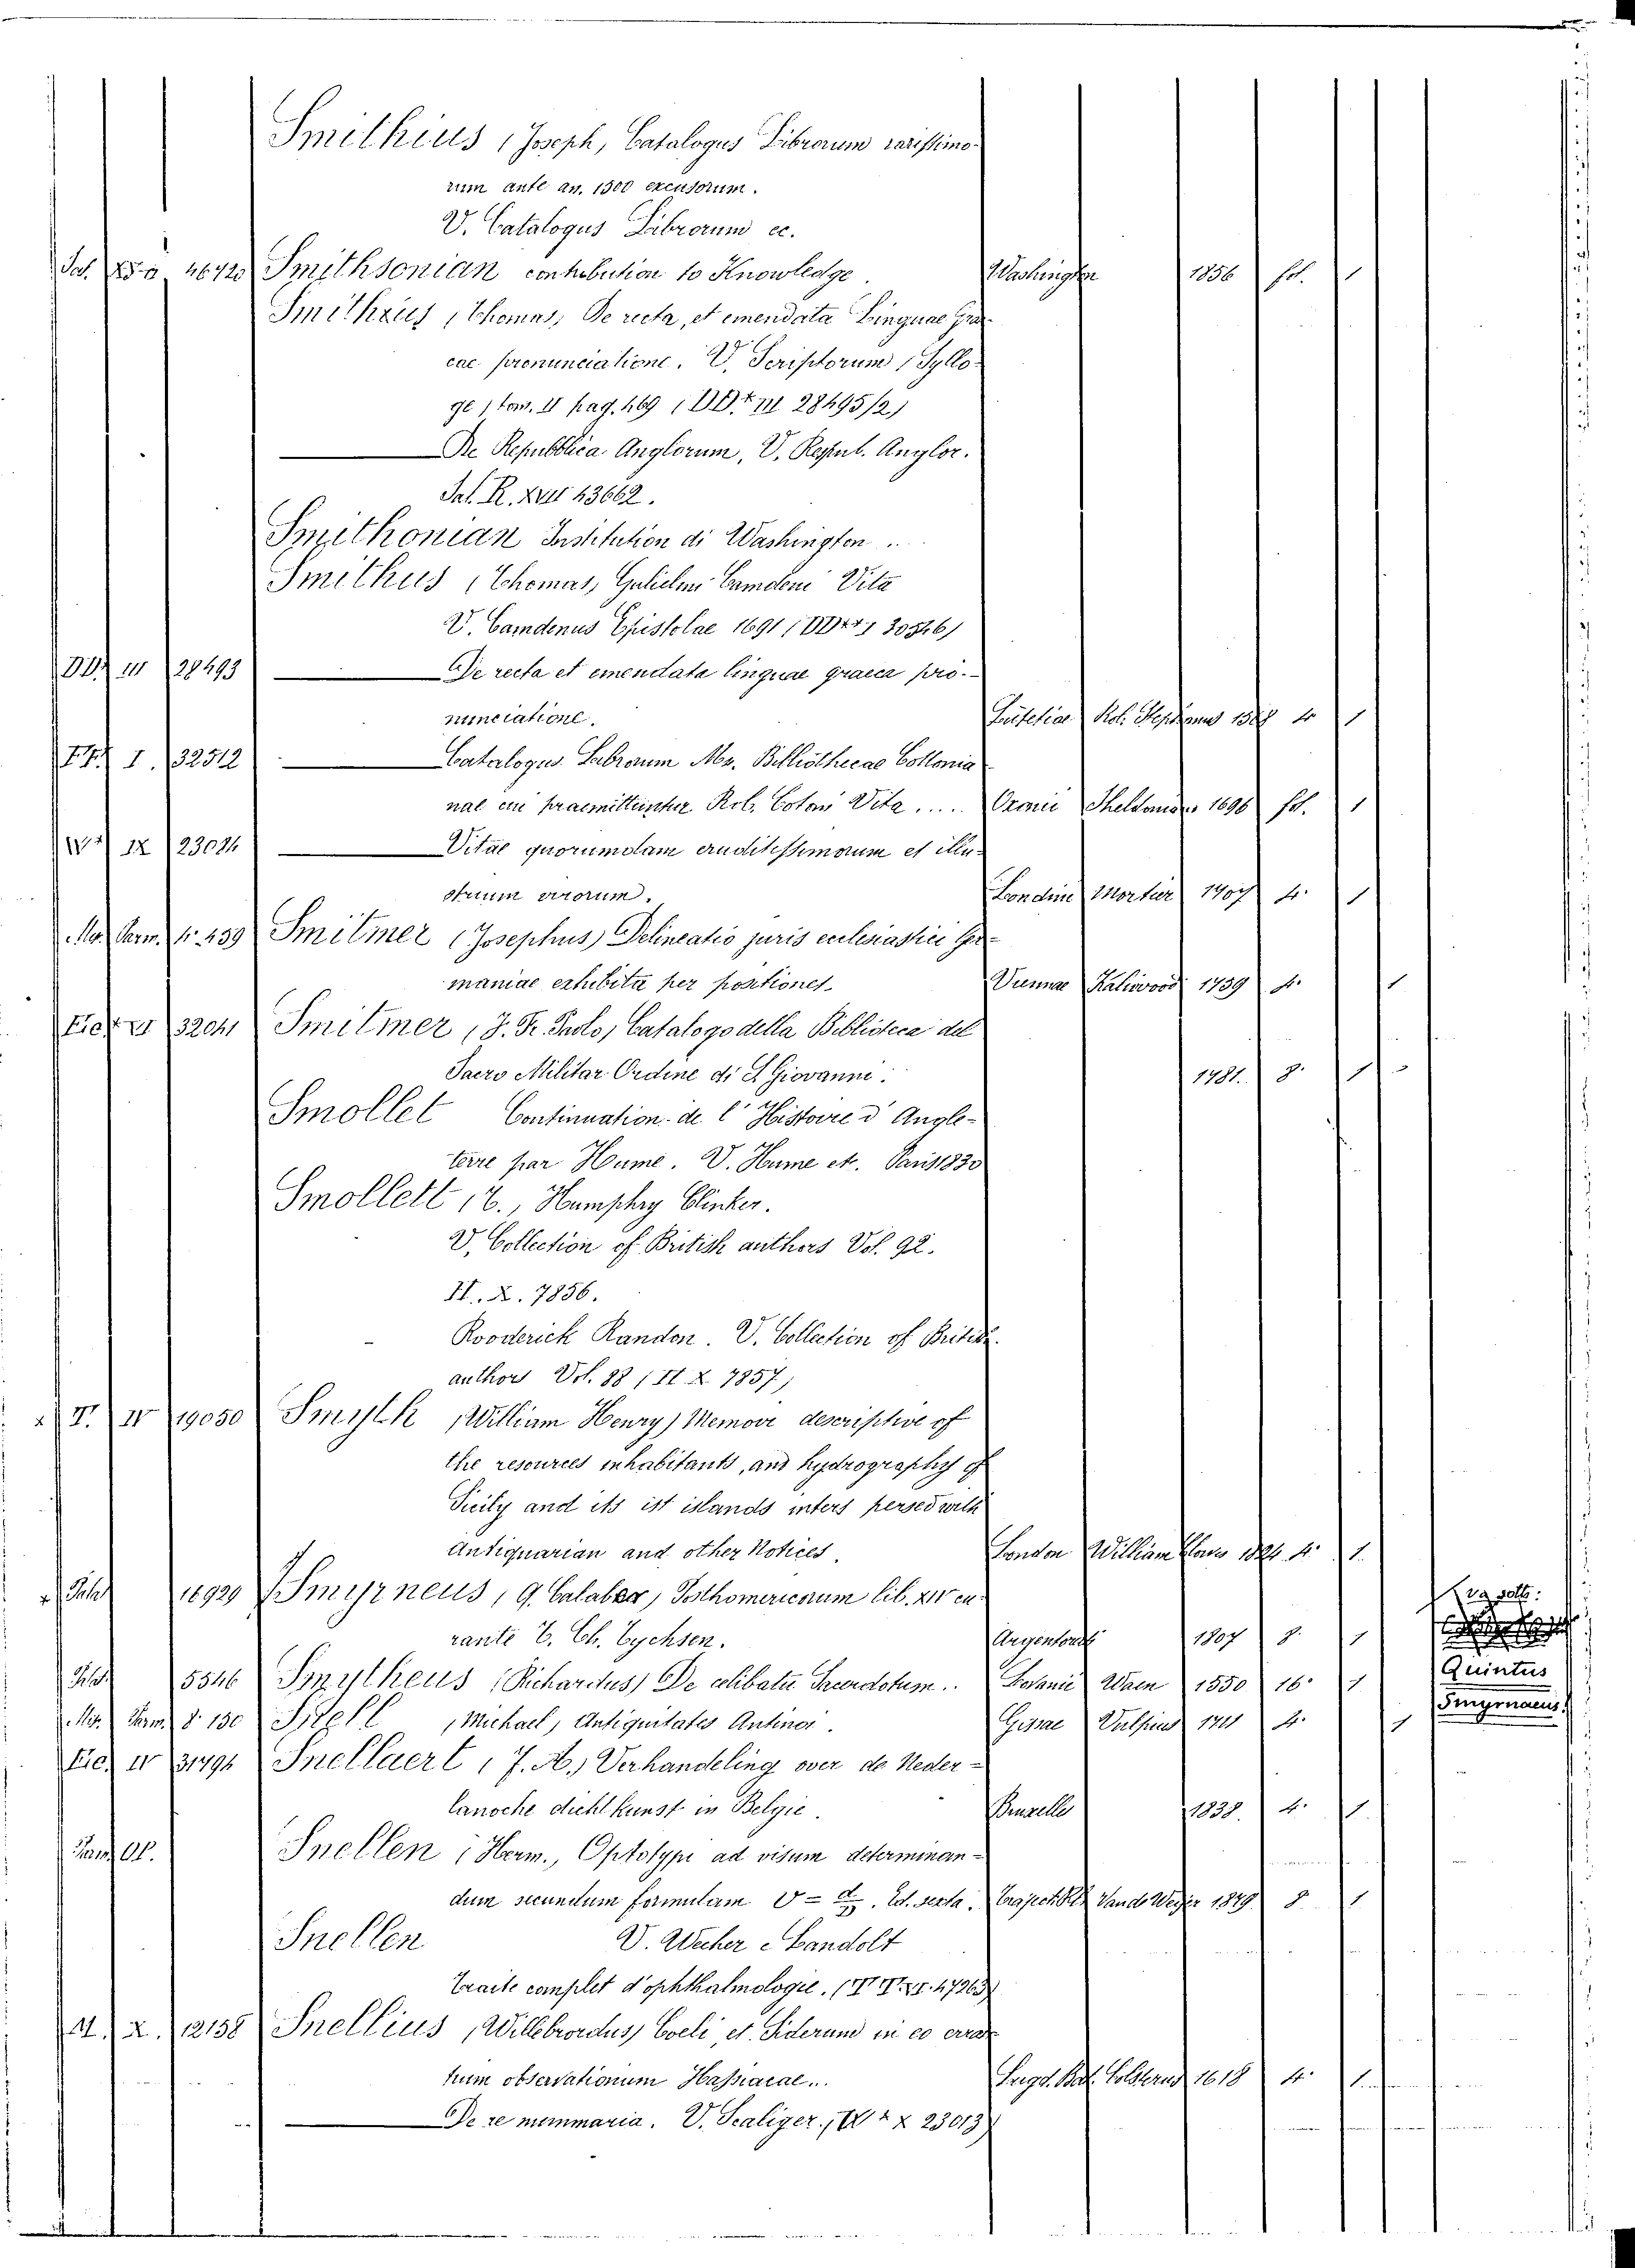 Smithius (Joseph, Catalogus Librorum rarissimo-
rum ante an. 1500 excusorum.
V. Catalogus Librorum ec.
Sal. 46720 Smithsonian contribution to Knowledge. Washington 1856 fol. 1
Smithius (Thomas, De recta, et emendata Linguae Gra-
cae pronunciatione. V. Scriptorum (Syllo-
ge (tom. II pag. 469 (DD.+ III 28495/2)
De Repubblica Anglorum, V. Repub. Anglor.
Sal. R. XVII 43662.
Smithonian Institution di Washington ..
Smithus (Thomas, Gulielmi Camdeni Vita
V. Camdenus Epistolae 1691 (DD++ 30526)
DD+ III 28493 De recta et emendata linguae graeca pro-
nunciatione. Lutetiae Rob. Stephanus 1568 4 1
FF+ I. 32512 Catalogus Librorum Ms. Bibliothecae Cottonia
nae cui praemittuntur Rob. Cotoni Vita .... Oxonii Sheldonar. 1696 fol. 1
IX 23024 Vitae quorumdam eruditissimorum et illu-
strium virorum. Londini Mortier 1707 4. 1
Ms. Germ. 4. 459 Smitmer (Josephus) Delineatio juris ecclesiastici Ger-
maniae exhibita per positiones. Viennae Kaliwood 1739 4. 1
32041 Smitmer (J. Fr. Paolo, Catalogo della Biblioteca del
Sacro Militar Ordine di S. Giovanni. 1781. 8. 1
Smollet Continuation de l'Histoire d'Angle-
terre par Hume. V. Hume etc. Paris 1830
Smollett (T., Humphry Clinker.
V. Collection of British authors Vol. 92.
II. X. 7856.
Rooderick Randon. V. Collection of British
authors Vol. 88 (II X 7857)
T. IV 19050 Smyth (William Henry) Memoir descriptive of
the resources inhabitants, and hydrography of
Sicily and its ist islands inters persed with
Antiquarian and other Notices. London William Clows 1824 4. 1.
16929 Smyrneus (Q. Calaber) Posthomericorum lib. XIV cu-
rante T. Ch. Tychsen. Argentorati 1807 8. 1
5546 Smytheus (Richardus) De celibatu Sacerdotum.. Lovanii Waen 1550 16. 1
Ms. Germ. 8. 130 Snell (Michael, Antiquitates Antinoi. Gissae Vulpius 1711 4. 1
IV 31794 Snellaert (J. A.) Verhandeling over de Neder-
lanoche dicht kunst in Belgie. Bruxelles 1838. 4. 1
Snellen (Herm., Optotypi ad visum determinan-
dum secundum formulam V = d/D. Ed. sexta. Traject. Rh Vande Weyer 1879 8. 1
Snellen V. Wecher e Landolt
Traite complet d'ophthalmologie. 47263
X. 12158 Snellius (Willebrordus) Coeli, et Siderum in eo erran
tium observationum Hassiacae... Lugd. Bat. Colsterus 1618 4. 1.
De re nummaria. V. Scaliger. X 23013)
Quintus
Smyrnaeus)